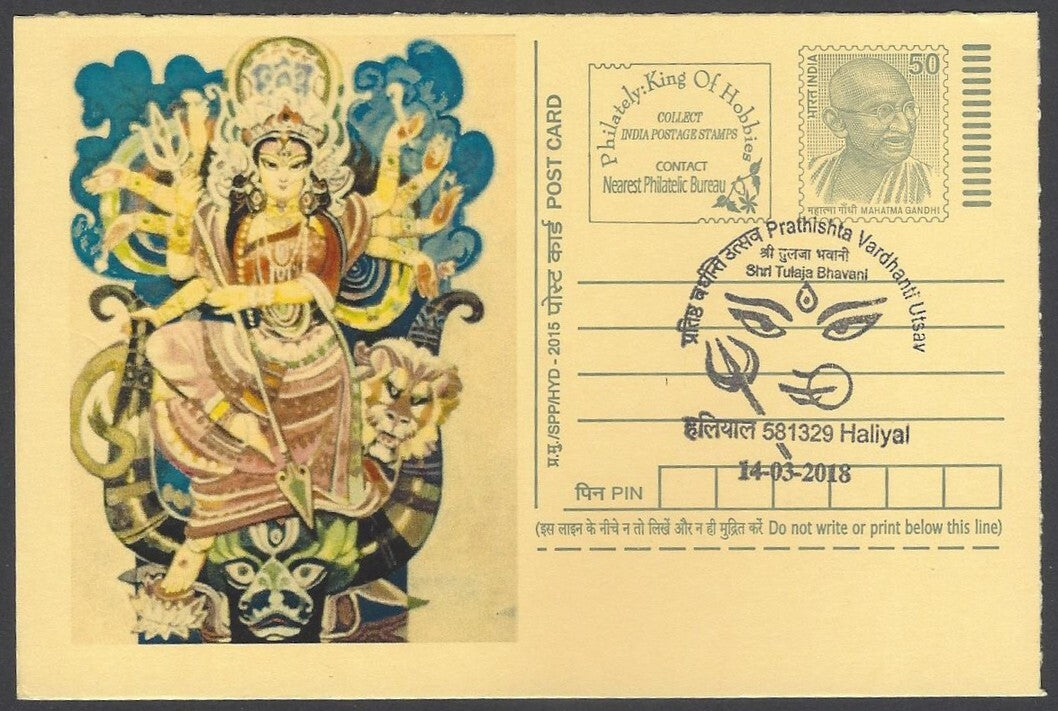 Philately: King Of Hobbies
COLLECT
INDIA POSTAGE STAMPS
CONTACT
Nearest Philatelic Bureau
भारत INDIA
50
महात्मा गाँधी MAHATMA GANDHI
प्र.मु./SPP/HYD - 2015 पोस्ट कार्ड POST CARD
प्रतिष्ठ वर्धन्ति उत्सव Prathishta Vardhanti Utsav
श्री तुलजा भवानी
Shri Tulaja Bhavani
हलियाल 581329 Haliyal
14-03-2018
पिन PIN
(इस लाइन के नीचे न तो लिखें और न ही मुद्रित करें Do not write or print below this line)